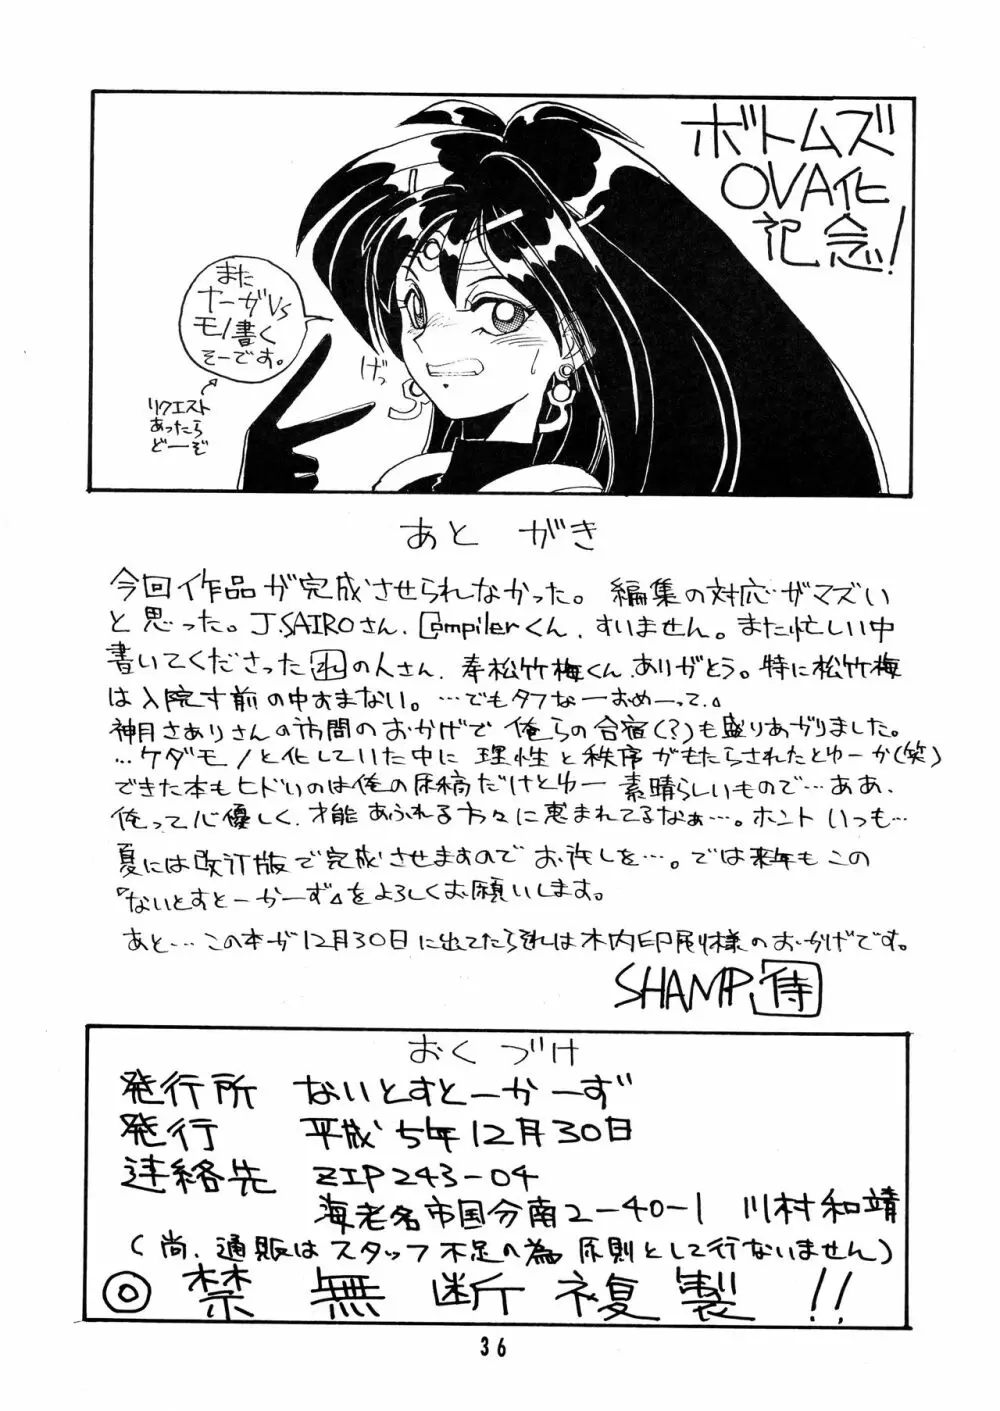 ボトムズ
OVA化
記念!
また
ヤーザVS
モノ書く
そーです。
リクエスト
あったら
どーぞ
げっ
あとがき
今回作品が完成させられなかった。編集の対応がマズい
と思った。J.SAIROさん、Compilerくん、すいません。また忙しい中
書いてくださったねの人さん、奉松竹梅くんありがとう。特に松竹梅
は入院寸前の中すまない。…でもタフなーおめーって。
神月さありさんの訪問のおかげで俺らの合宿(?)も盛りあがりました。
…ケダモノと化していた中に理性と秩序がもたらされたとゆーか(笑)
できた本もヒドいのは俺の原稿だけとゆー素晴らしいもので…ああ、
俺って心優しく、才能あふれる方々に恵まれてるなぁ…。ホントいつも…
夏には改訂版で完成させますのでお許しを…。では来年もこの
『ないとすとーかーず』をよろしくお願いします。
あと…この本が12月30日に出てたらそれは木内印刷様のおかげです。
SHAMP侍
おくづけ
発行所 ないとすとーかーず
発行 平成5年12月30日
連絡先 ZIP243-04
海老名市国分南2-40-1 川村和靖
(尚、通販はスタッフ不足の為原則として行ないません)
◎禁無断複製!!
36